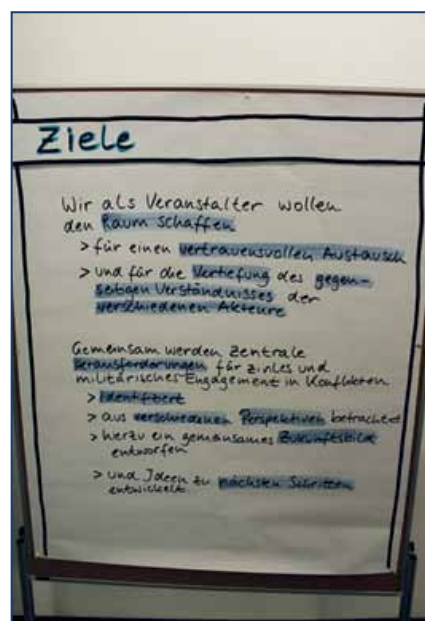 Ziele
Wir als Veranstalter wollen
den Raum schaffen
> für einen vertrauensvollen Austausch
> und für die Vertiefung des gegen-
seitigen Verständnisses der
verschiedenen Akteure
Gemeinsam werden zentrale
Herausforderungen für ziviles und
militärisches Engagement in Konflikten
> identifiziert
> aus verschiedenen Perspektiven betrachtet
> hierzu ein gemeinsames Zukunftsbild
entworfen
> und Ideen zu nächsten Schritten
entwickelt.